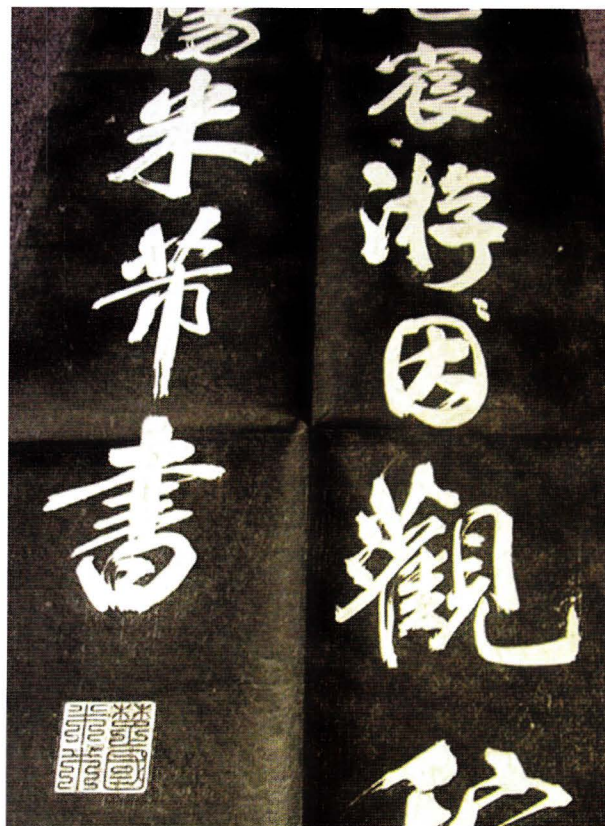 宸游因觀
陽米芾書